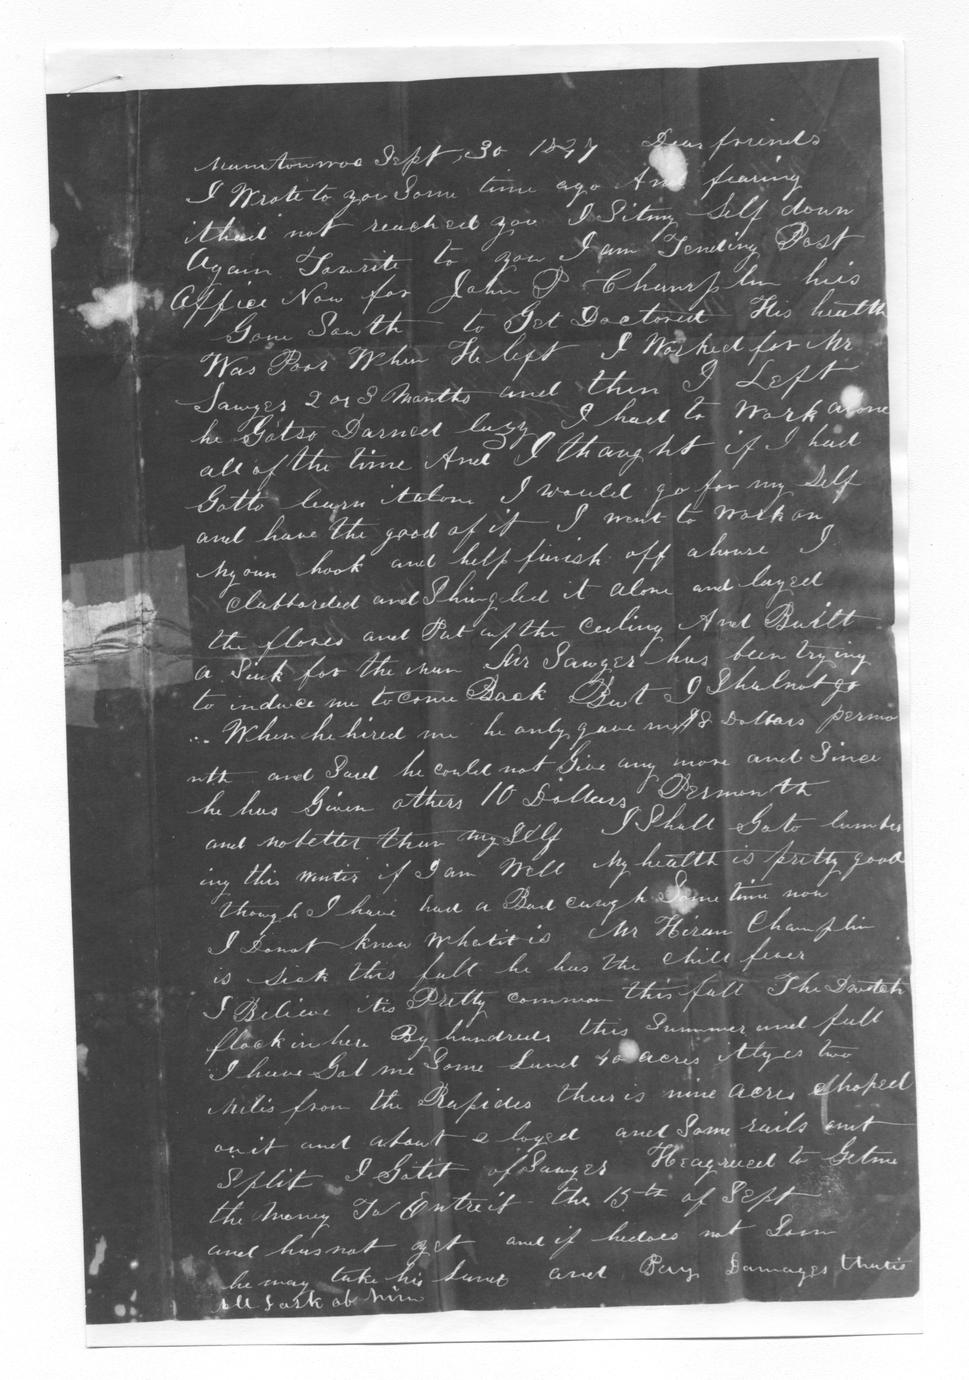 Sept, 30 1847 Dear friends
I Wrote to you Some time ago And fearing
ithad not reached you I Sitmy Self down
Again Towrite to you I am Tending Post
Office Now for John P Champlin his
Gone Sauth to Get Doctored His health
Was Poor When He left I Worked for Mr
Sawyer 2 or 3 Months and then I Left
he Gotso Darned lazy I had to Work alone
all of the time And I thaught if I had
Gotto learn italone I would go for my Self
and have the good of it I went to Work on
Myown hook and help finish off ahouse I
Clabborded and Shingled it alone and layed
the flores and Put up the Ceiling And Built
a Sink for the man Mr Sawyer has been trying
to induce me tocome Back But I Shalnot go
When he hired me he only gave me 8 Dollars permo
nth and Said he could not Give any more and Since
he has Given others 10 Dollars Permonth
and nobetter than mySelf I Shall Goto lumber
ing this winter if I am Well My health is pretty good
though I have had a Bad caugh Some time now
I Donot know Whatit is Mr Hiram Champlin
is Sick this fall he has the Chill fever
I Believe itis Pretty common this fall The Dutch
flock in here By hundreds this Summer and fall
I have Got me Some Land 40 acres itlyes two
Milis from the Rapides thair is nine acres Choped
onit and about 2 loged and Some rails
Split I Gotit of Sawyer Heagreed to Getme
the Money To Entreit the 15th of Sept
and hasnot yet and if hedoes not Soon
he may take his Land and Pay Damages thatis
all I ask of him